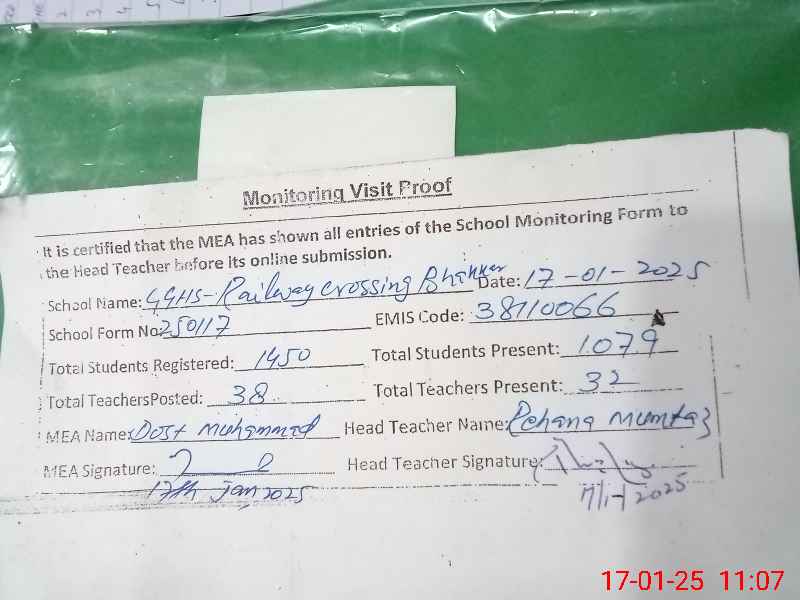 Monitoring Visit Proof
It is certified that the MEA has shown all entries of the School Monitoring Form to
the Head Teacher before its online submission.
School Name: GGHS-Railway crossing Bhakkar Date: 17-01-2025
School Form No: 250117 EMIS Code: 38110066
Total Students Registered: 1450 Total Students Present: 1079
Total TeachersPosted: 38 Total Teachers Present: 32
MEA Name: Dost Muhammad Head Teacher Name: Rehana Mumtaz
MEA Signature: Head Teacher Signature:
17th Jan 2025
17-01-25 11:07